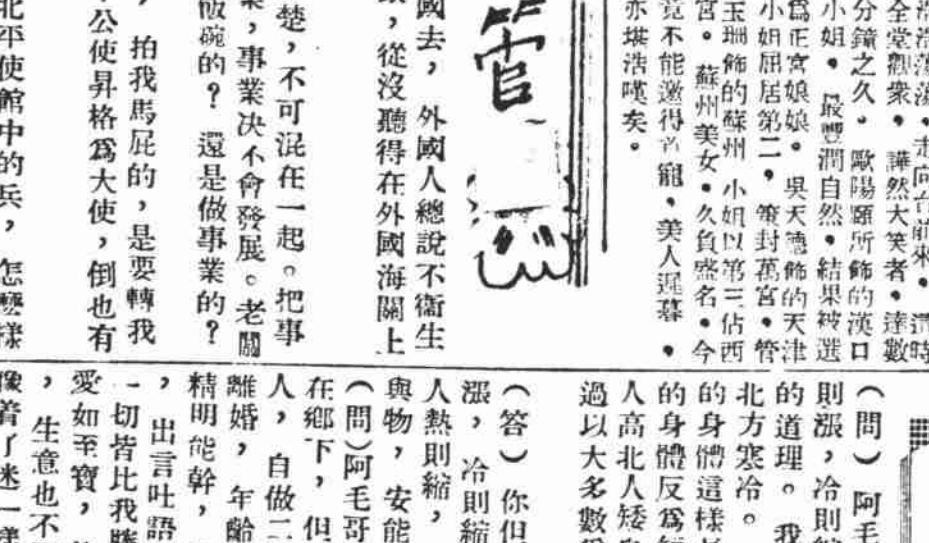 浩浩蕩蕩，走向台前來，漕時
全堂觀衆，譁然大笑者，達數
分鐘之久。歐陽頤所飾的漢口
小姐，最豐潤自然，結果被選
爲正宮娘娘。吳天德飾的天津
小姐屈居第二，策封萬宮，管
玉珊飾的蘇州小姐以第三佔西
宮。蘇州美女，久負盛名，今
竟不能邀得首寵，美人遲暮，
亦堪浩嘆矣。
管
國去，外國人總說不衞生
，從沒聽得在外國海關上
楚，不可混在一起。把事
業，事業决不會發展。老闆
飯碗的？還是做事業的？
，拍我馬屁的，是要轉我
公使昇格爲大使，倒也有
北平使館中的兵，怎麽樣
（問）阿毛
則漲，冷則縮
的道理。我
北方寒冷。
的身體這樣長
的身體反爲短
人高北人矮
過以大多數
（答）你但
漲，冷則縮
人熱則縮，
與物，安能
（問）阿毛哥
在鄉下，但
人，自做二
離婚，年齡
精明能幹，
，出言吐語
一切皆比我勝
愛如至寶，
，生意也不
像着了迷一樣